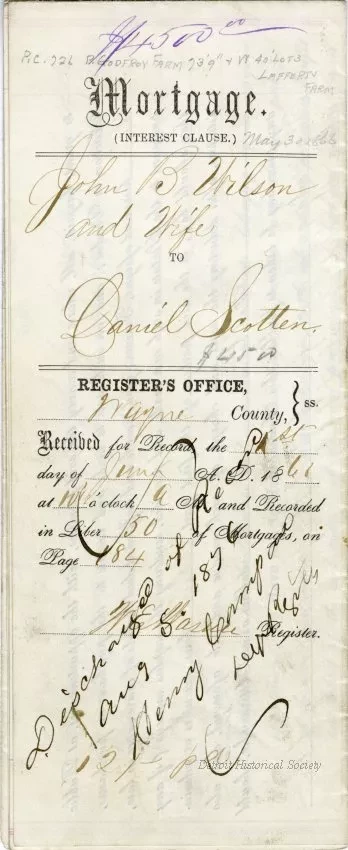 $4500 00
P.C. 726 B. GODFROY FARM 73'9" & W 40' LOT 3
LAFFERTY
FARM
Mortgage.
(INTEREST CLAUSE.) May 30 1868
John B Wilson
and Wife
TO
Daniel Scotten.
$4500
REGISTER'S OFFICE,
Wayne County, } ss.
Received for Record the 1st
day of June A. D. 186
at o'clock A M and Recorded
in Liber 50 of Mortgages, on
Page 184
Register.
Discharged
Aug 5 1876
Henry
Dep Reg
12/- pd
Detroit Historical Society